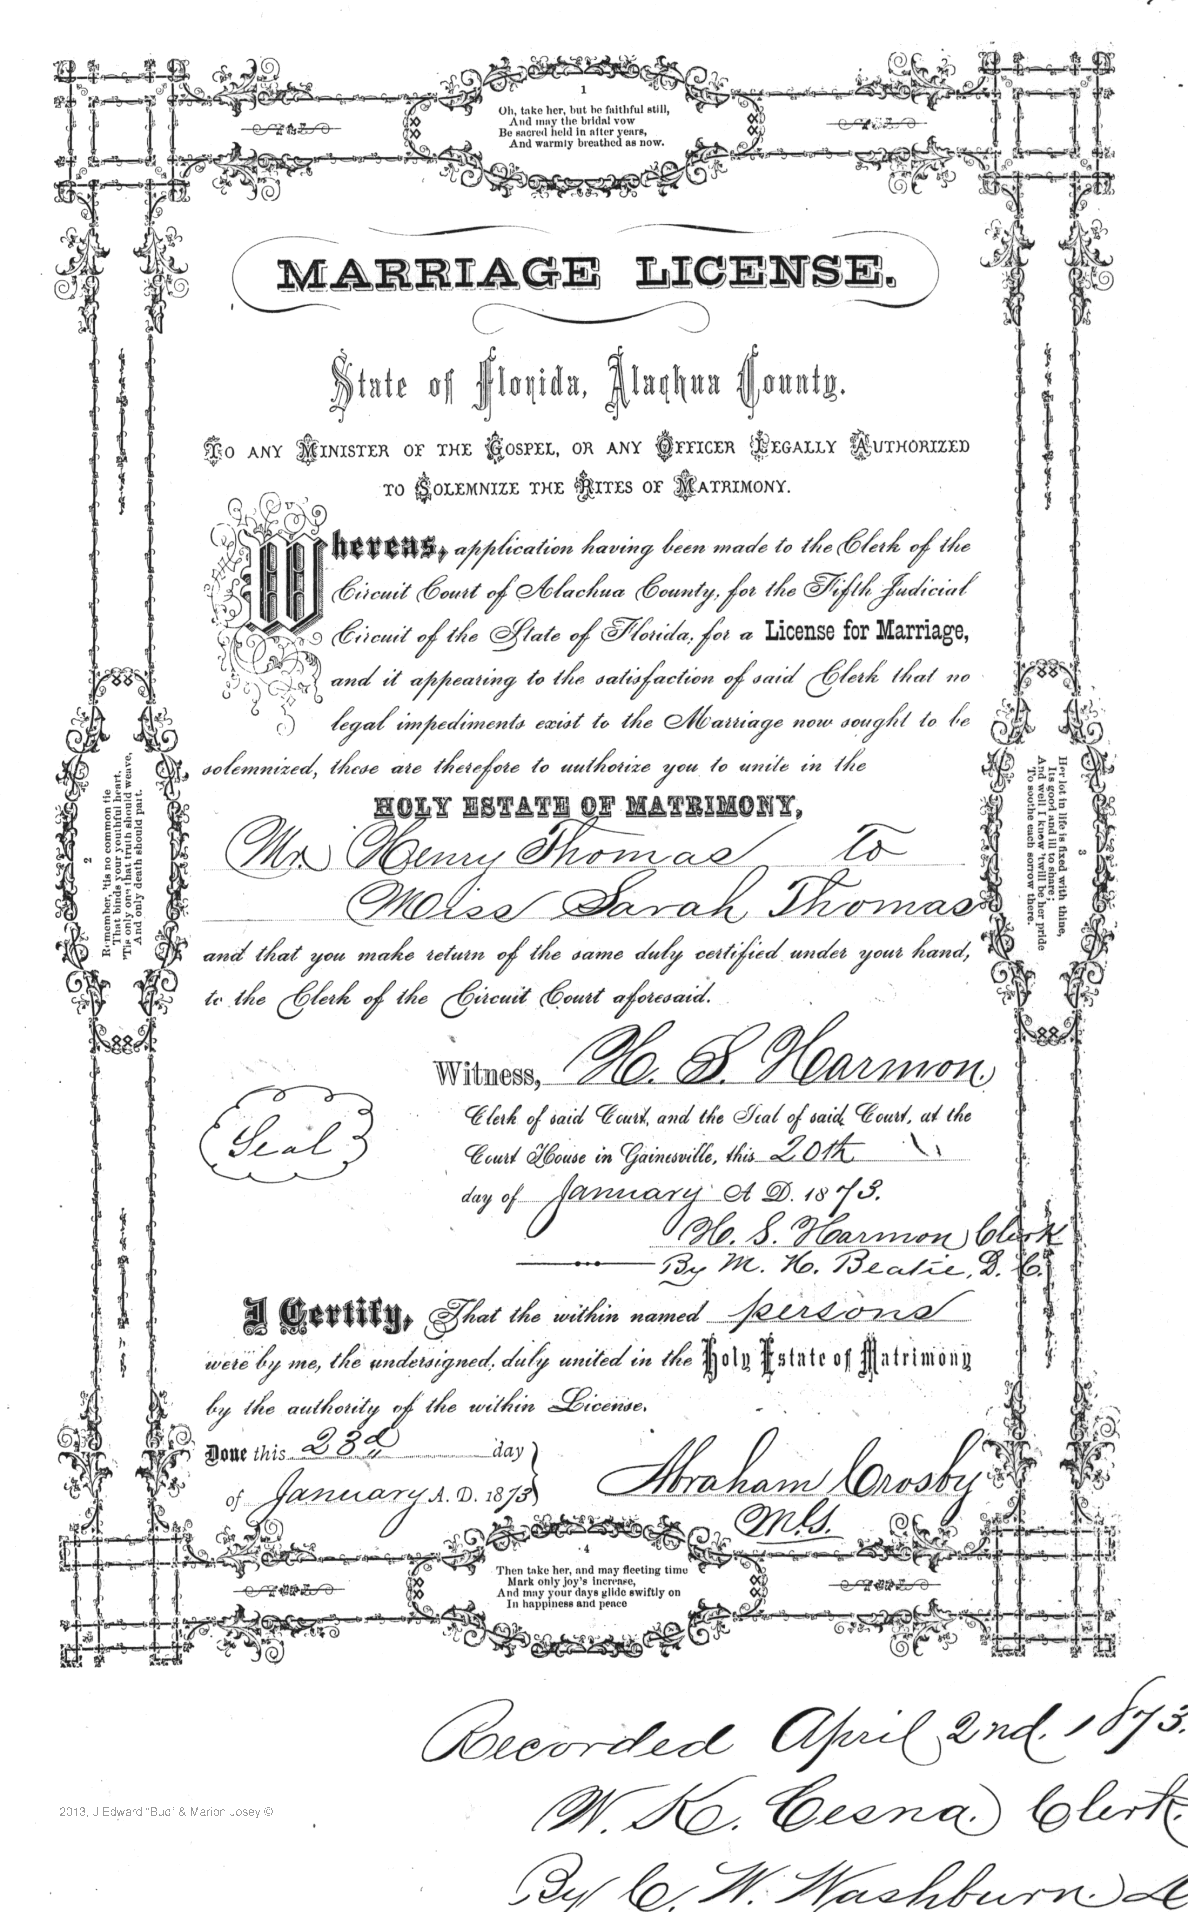 1
Oh, take her, but be faithful still,
And may the bridal vow
Be sacred held in after years,
And warmly breathed as now.
MARRIAGE LICENSE.
State of Florida, Alachua County.
To any Minister of the Gospel, or any Officer Legally Authorized
to Solemnize the Rites of Matrimony.
Whereas, application having been made to the Clerk of the
Circuit Court of Alachua County, for the Fifth Judicial
Circuit of the State of Florida, for a License for Marriage,
and it appearing to the satisfaction of said Clerk that no
legal impediments exist to the Marriage now sought to be
solemnized, these are therefore to authorize you to unite in the
HOLY ESTATE OF MATRIMONY,
Mr. Henry Thomas to
Miss Sarah Thomas
and that you make return of the same duly certified under your hand,
to the Clerk of the Circuit Court aforesaid.
2
Remember, 'tis no common tie
That binds your youthful heart,
'Tis only one that truth should weave,
And only death should part.
3
Her lot in life is fixed with thine,
Its good and ill to share;
And well I know 'twill be her pride
To soothe each sorrow there.
Witness, H. S. Harmon,
Clerk of said Court, and the Seal of said Court, at the
Court House in Gainesville, this 20th
day of January A D. 1873.
Seal
H. S. Harmon Clerk
By M. H. Beatie, D. C.
I Certify, That the within named persons
were by me, the undersigned, duly united in the Holy Estate of Matrimony
by the authority of the within License.
Done this 23d day
of January A. D. 1873
Abraham Crosby
M.G.
4
Then take her, and may fleeting time
Mark only joy's increase,
And may your days glide swiftly on
In happiness and peace
Recorded April 2nd. 1873.
W. K. Cesna. Clerk.
By C. W. Washburn.
2013, J Edward "Bud" & Marion Josey ©